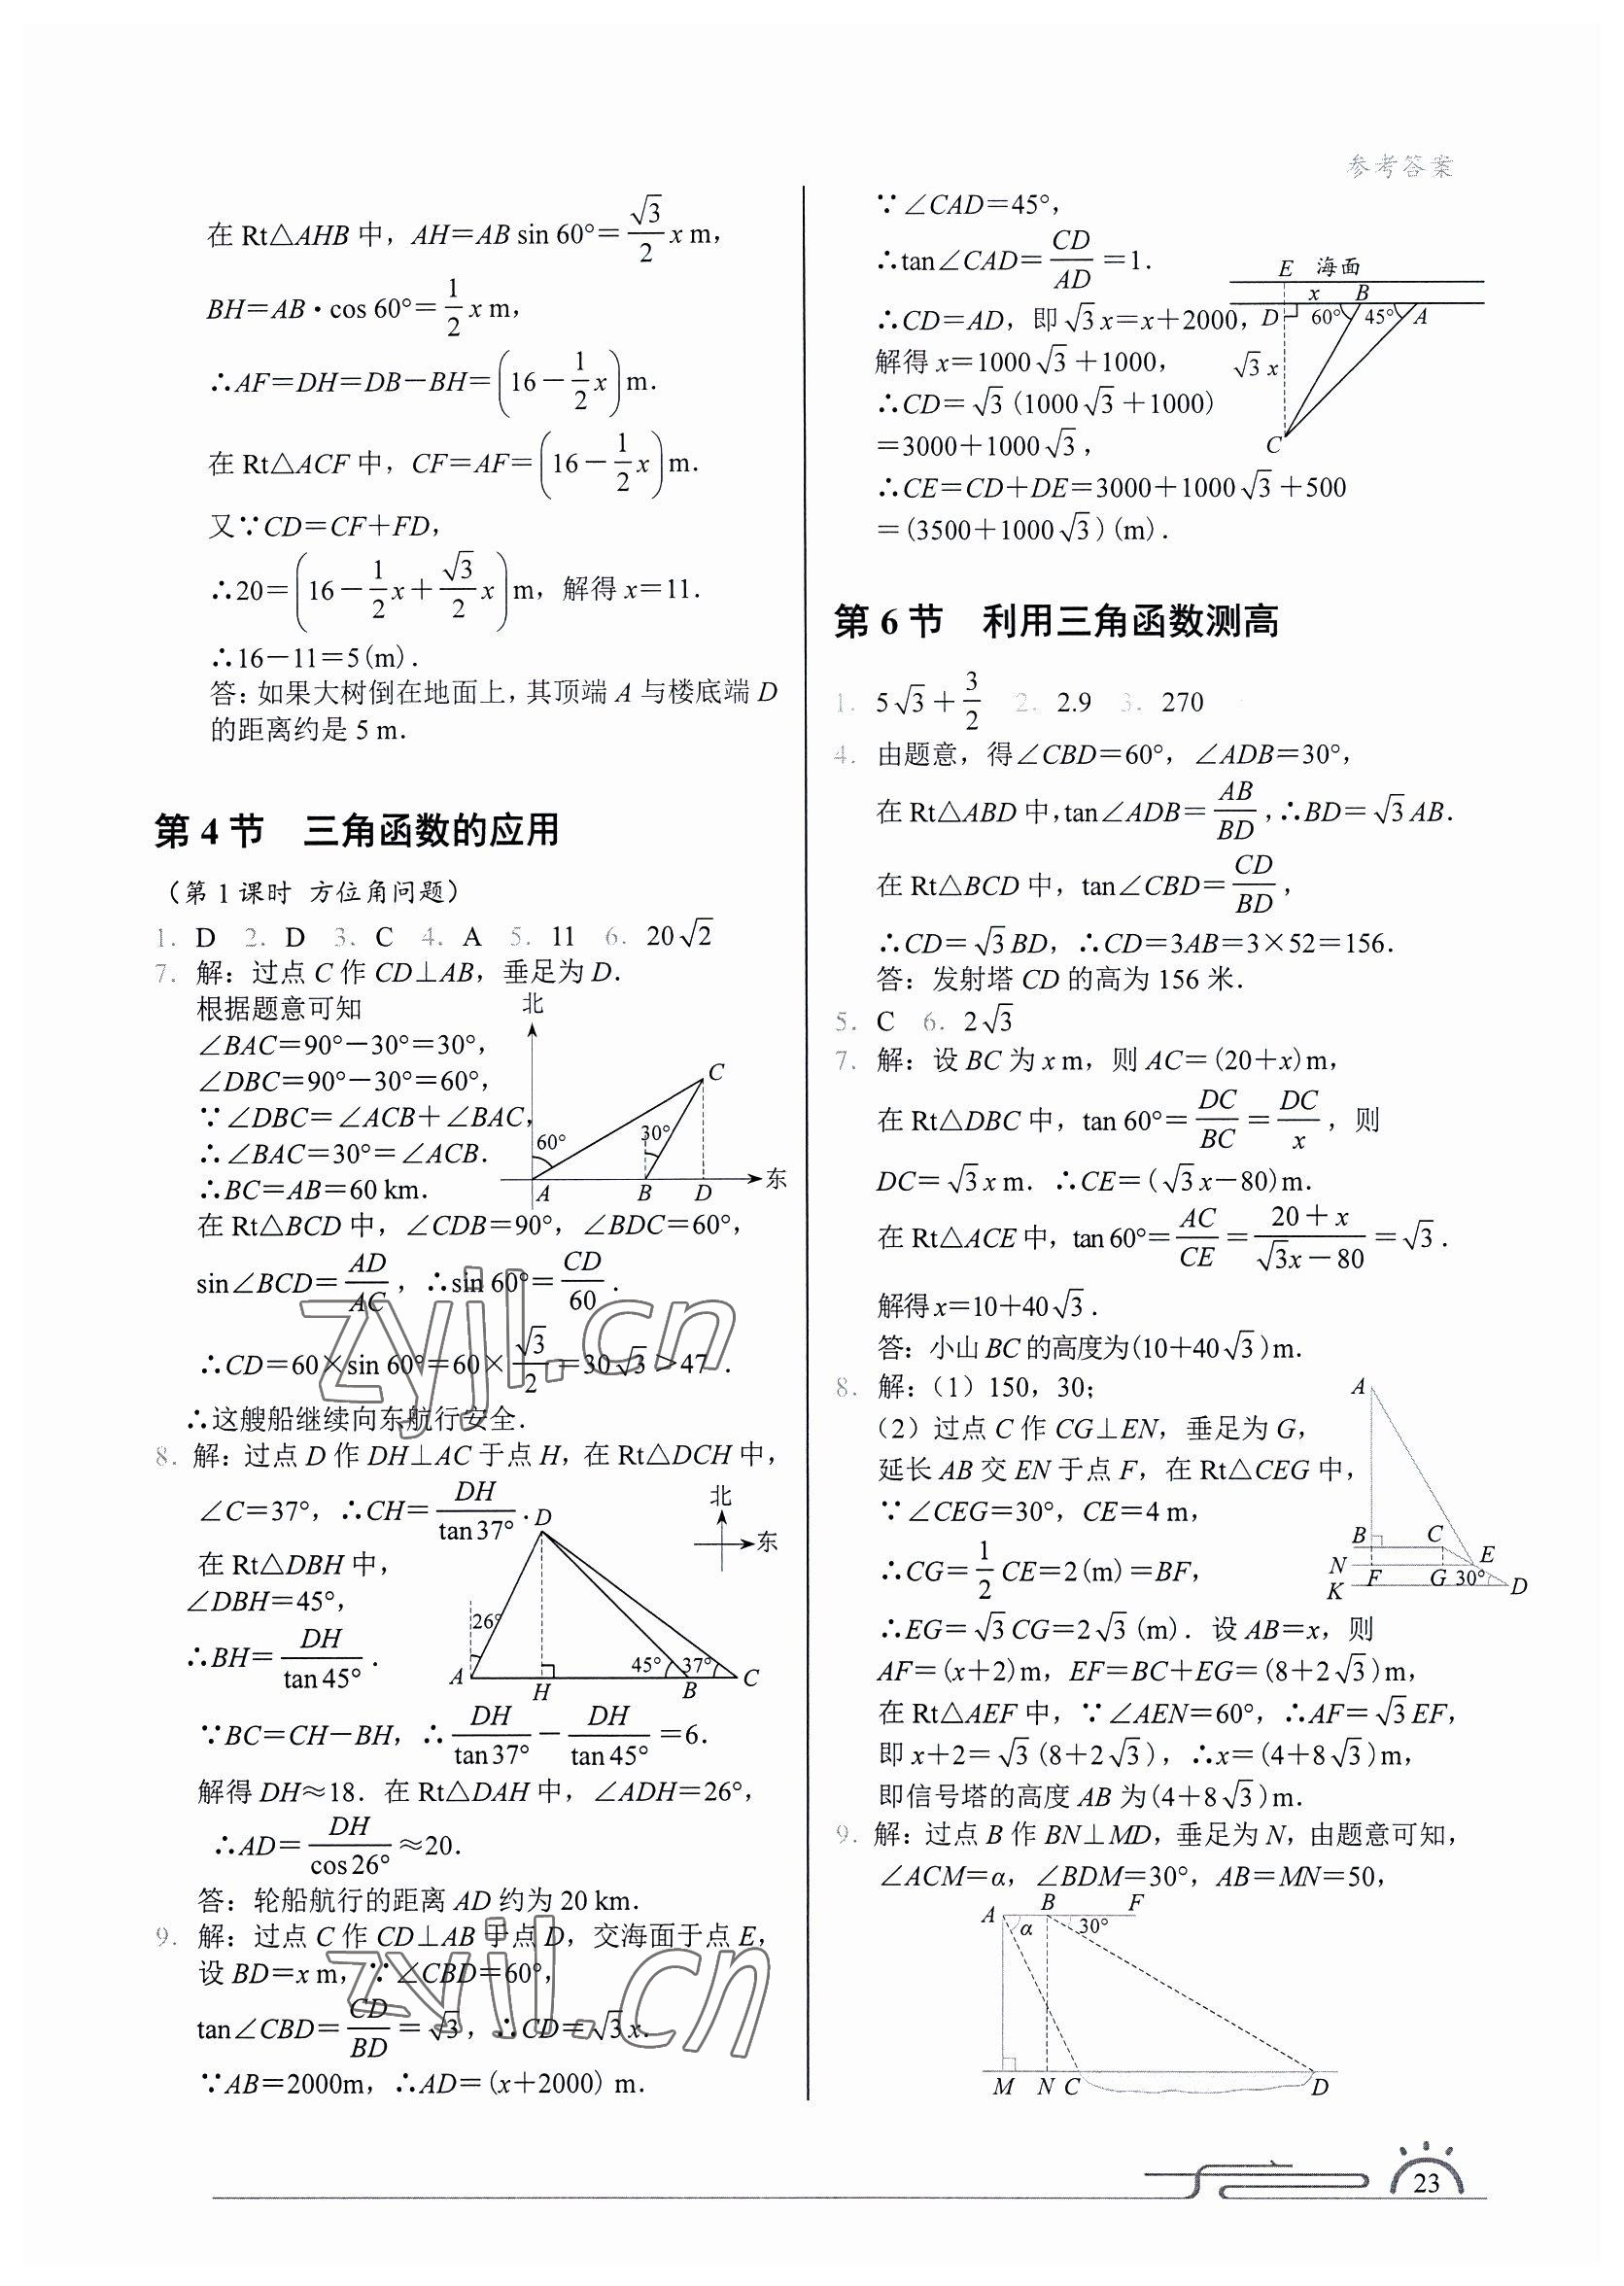 参考答案
在 Rt△AHB 中，AH=AB sin 60°=√3/2 x m，
BH=AB·cos 60°=1/2 x m，
∴AF=DH=DB−BH=(16−1/2 x)m.
在 Rt△ACF 中，CF=AF=(16−1/2 x)m.
又∵CD=CF+FD，
∴20=(16−1/2 x+√3/2 x)m，解得 x=11.
∴16−11=5(m).
答：如果大树倒在地面上，其顶端 A 与楼底端 D
的距离约是 5 m.
第 4 节 三角函数的应用
（第 1 课时 方位角问题）
1. D 2. D 3. C 4. A 5. 11 6. 20√2
7. 解：过点 C 作 CD⊥AB，垂足为 D.
根据题意可知
∠BAC=90°−30°=30°，
∠DBC=90°−30°=60°，
∵∠DBC=∠ACB+∠BAC，
∴∠BAC=30°=∠ACB.
∴BC=AB=60 km.
北
C
60°
30°
A
B
D
东
在 Rt△BCD 中，∠CDB=90°，∠BDC=60°，
sin∠BCD=AD/AC，∴sin 60°=CD/60.
∴CD=60×sin 60°=60×√3/2=30√3>47.
∴这艘船继续向东航行安全.
8. 解：过点 D 作 DH⊥AC 于点 H，在 Rt△DCH 中，
∠C=37°，∴CH=DH/tan 37°.
在 Rt△DBH 中，
∠DBH=45°，
∴BH=DH/tan 45°.
D
北
东
26°
45°
37°
A
H
B
C
∵BC=CH−BH，∴DH/tan 37°−DH/tan 45°=6.
解得 DH≈18. 在 Rt△DAH 中，∠ADH=26°，
∴AD=DH/cos 26°≈20.
答：轮船航行的距离 AD 约为 20 km.
9. 解：过点 C 作 CD⊥AB 于点 D，交海面于点 E，
设 BD=x m，∵∠CBD=60°，
tan∠CBD=CD/BD=√3，∴CD=√3x.
∵AB=2000m，∴AD=(x+2000) m.
∵∠CAD=45°，
∴tan∠CAD=CD/AD=1.
∴CD=AD，即√3x=x+2000，
解得 x=1000√3+1000，
∴CD=√3(1000√3+1000)
=3000+1000√3，
∴CE=CD+DE=3000+1000√3+500
=(3500+1000√3)(m).
E 海面
x B
D 60° 45° A
√3 x
C
第 6 节 利用三角函数测高
1. 5√3+3/2 2. 2.9 3. 270
4. 由题意，得∠CBD=60°，∠ADB=30°，
在 Rt△ABD 中，tan∠ADB=AB/BD，∴BD=√3AB.
在 Rt△BCD 中，tan∠CBD=CD/BD，
∴CD=√3BD，∴CD=3AB=3×52=156.
答：发射塔 CD 的高为 156 米.
5. C 6. 2√3
7. 解：设 BC 为 x m，则 AC=(20+x)m，
在 Rt△DBC 中，tan 60°=DC/BC=DC/x，则
DC=√3x m. ∴CE=(√3x−80)m.
在 Rt△ACE 中，tan 60°=AC/CE=(20+x)/(√3x−80)=√3.
解得 x=10+40√3.
答：小山 BC 的高度为(10+40√3)m.
8. 解：（1）150，30；
（2）过点 C 作 CG⊥EN，垂足为 G，
延长 AB 交 EN 于点 F，在 Rt△CEG 中，
∵∠CEG=30°，CE=4 m，
∴CG=1/2 CE=2(m)=BF，
A
B C
N F G E
K 30° D
∴EG=√3CG=2√3(m). 设 AB=x，则
AF=(x+2)m，EF=BC+EG=(8+2√3)m，
在 Rt△AEF 中，∵∠AEN=60°，∴AF=√3EF，
即 x+2=√3(8+2√3)，∴x=(4+8√3)m，
即信号塔的高度 AB 为(4+8√3)m.
9. 解：过点 B 作 BN⊥MD，垂足为 N，由题意可知，
∠ACM=α，∠BDM=30°，AB=MN=50，
A B F
α 30°
M N C D
23
zyjl.cn
zyjl.cn